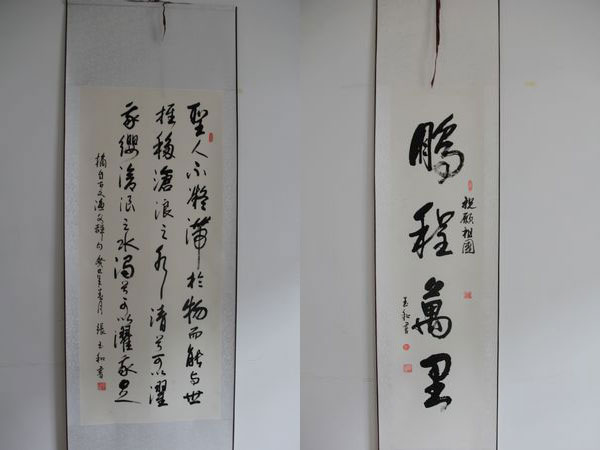 聖人不凝滯於物而能与世
推移滄浪之水清兮可以濯
我纓滄浪之水濁兮可以濯我足
摘自古文漁父辭句 癸巳年春月 張玉和書
祝願祖國
鵬程萬里
玉和書